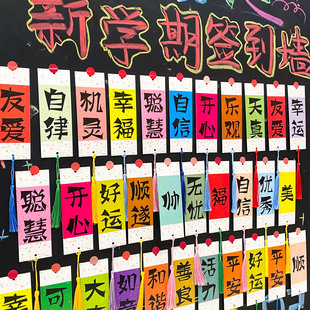 新学期签到墙
友爱 自律 机灵 幸福 聪慧 自信 开心 乐观 天真 友爱 幸运
聪慧 开心 好运 顺遂 帅 无忧 福 自信 优秀 美
幸 可 大 如意 和谐 善良 活力 平安 好运 平安 顺